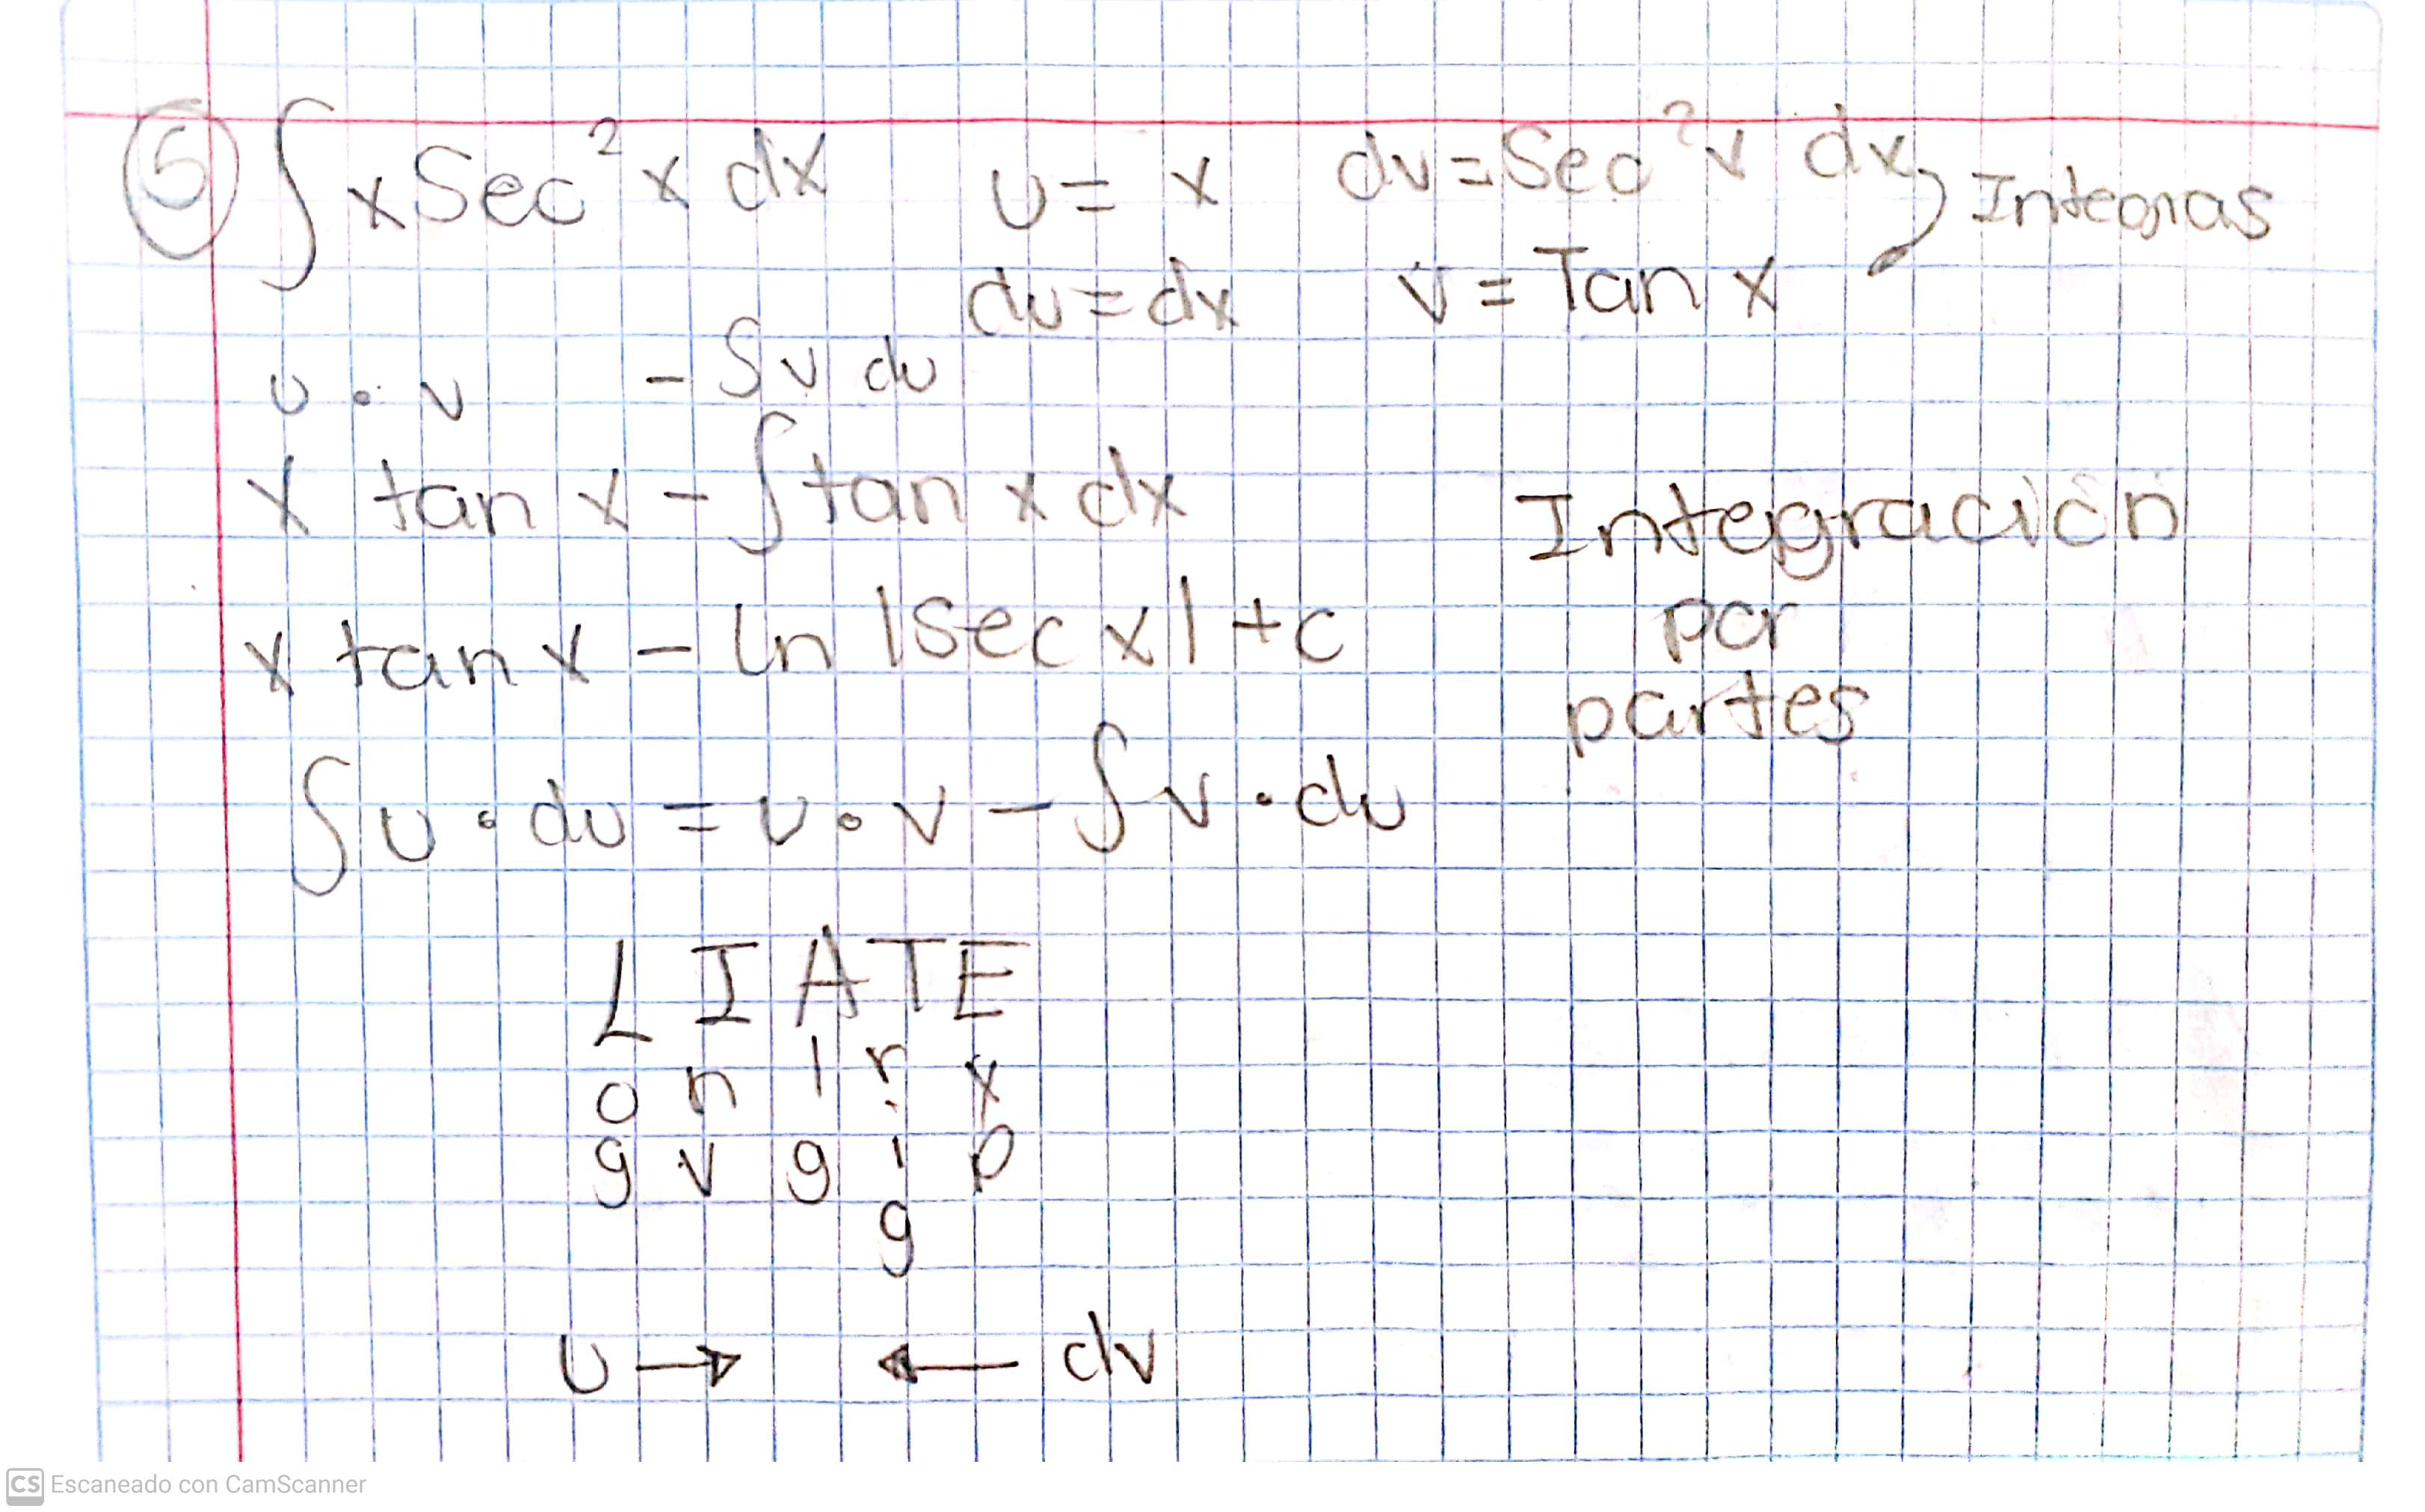 ⑤ ∫ x Sec² x dx    u = x    dv = Sec² x dx  Integras
du = dx    v = Tan x
u • v  - ∫ v du
x tan x - ∫ tan x dx
x tan x - ln |sec x| + c
Integración
por
partes
∫ u • du = u • v - ∫ v • du
L I A T E
o n l r x
g v g i p
g
u → ← dv
CS Escaneado con CamScanner